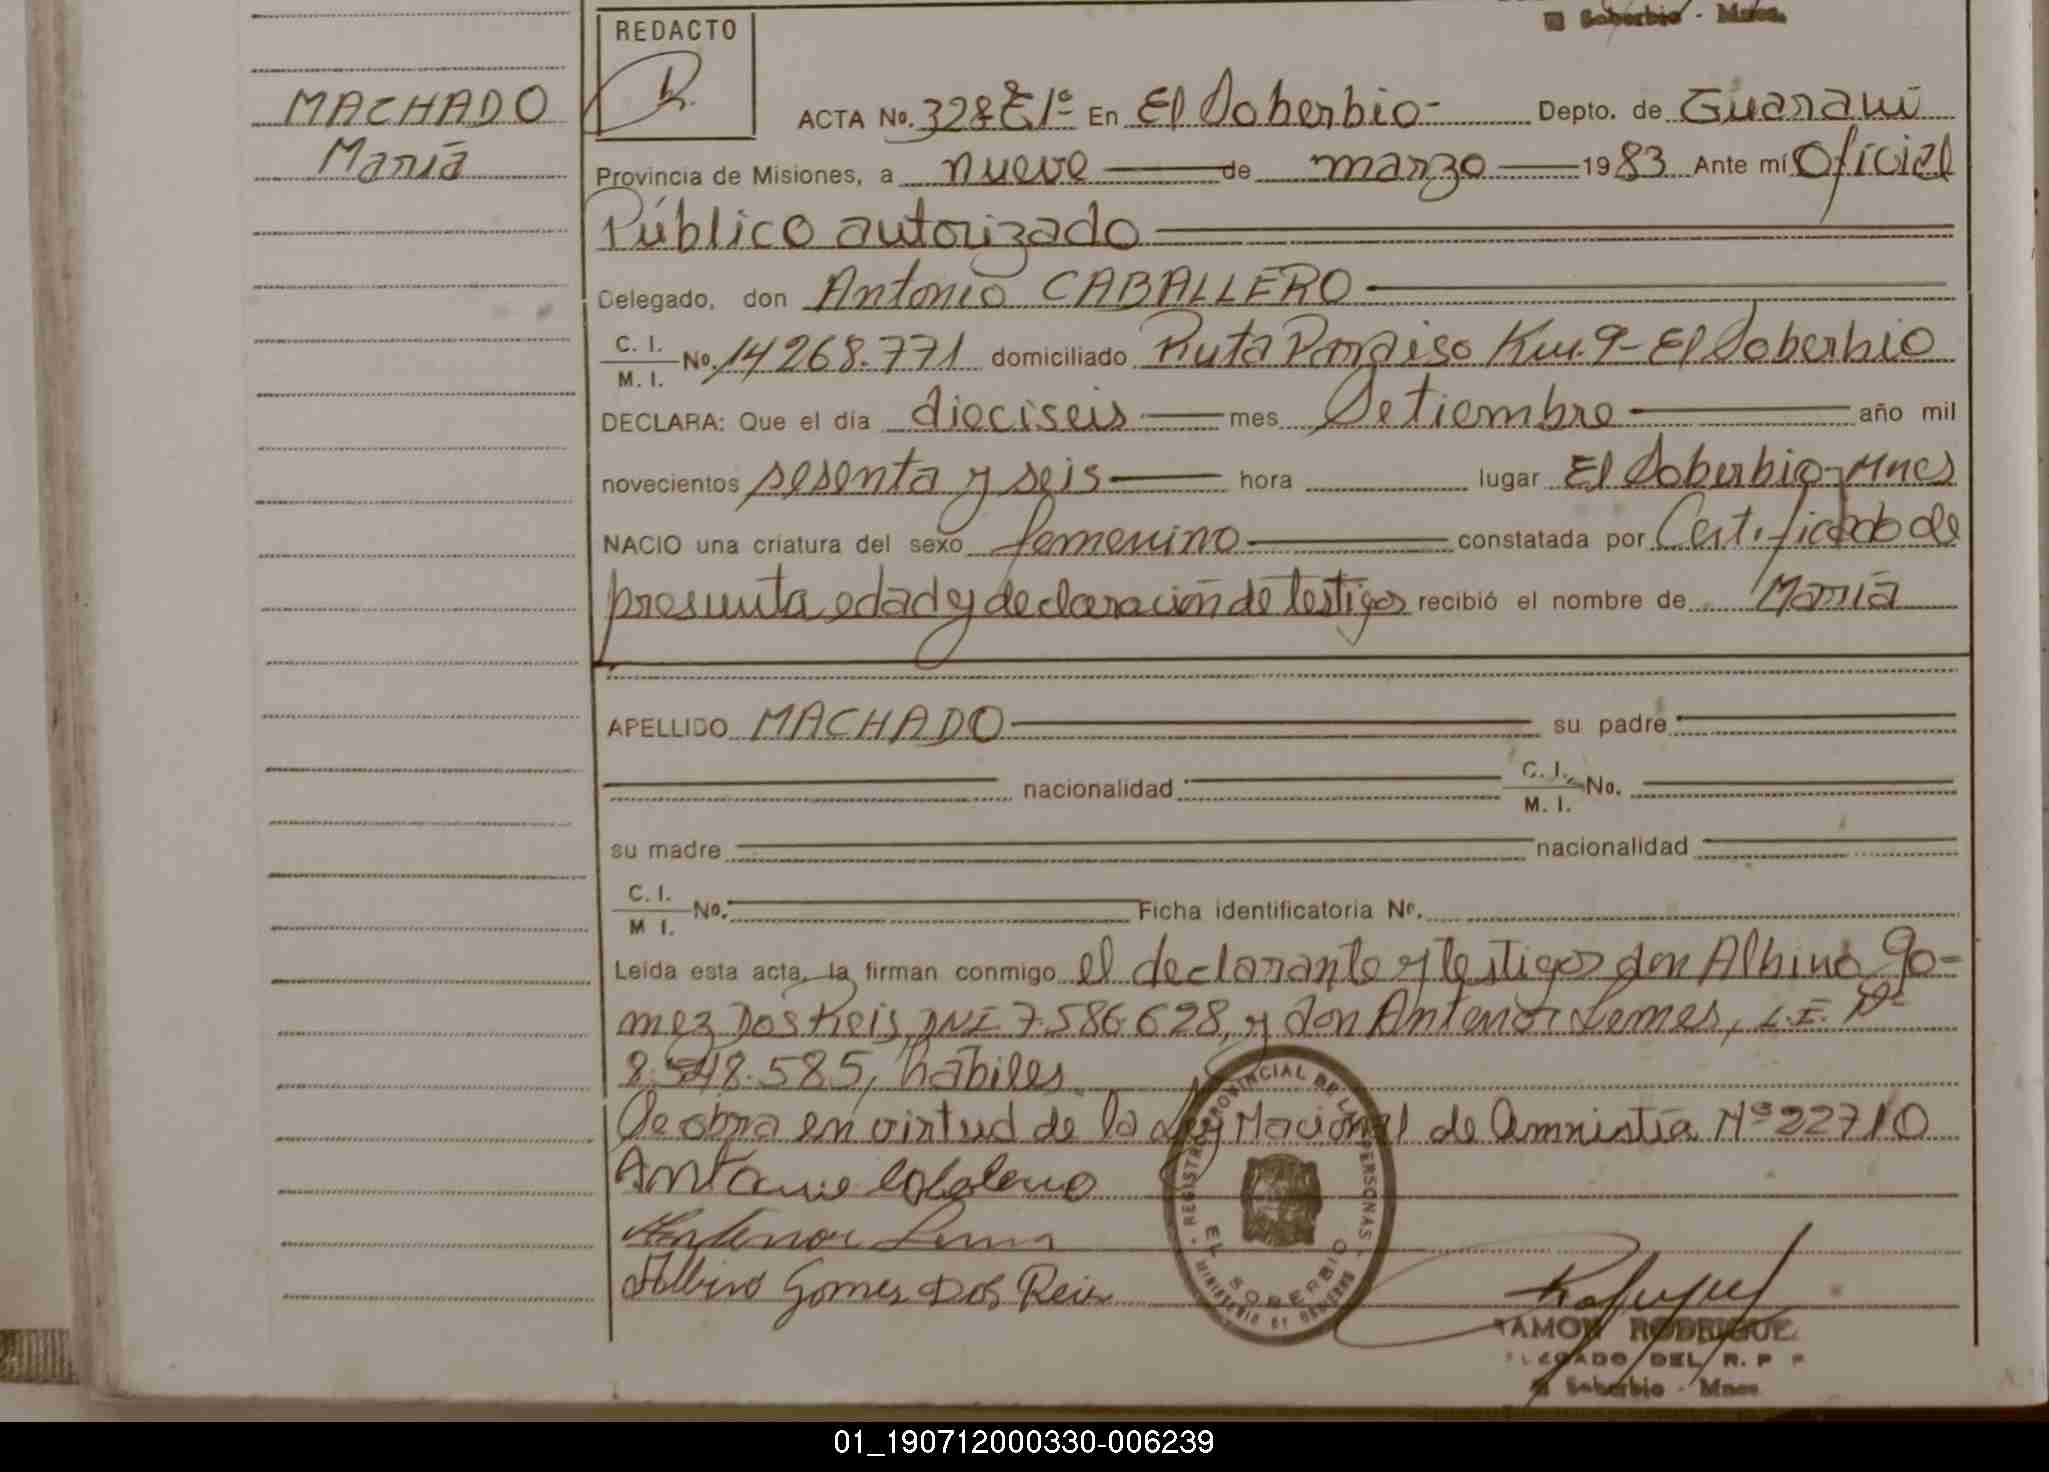 El Soberbio - Mnes.
REDACTO
MACHADO
María
ACTA No. 328 E 1º En El Soberbio - Depto. de Guaraní
Provincia de Misiones, a nueve de marzo 1983 Ante mí Oficial
Público autorizado
Delegado, don Antonio CABALLERO
C. I.
M. I. No. 14268.771 domiciliado Ruta Paraiso Km. 9 - El Soberbio
DECLARA: Que el día dieciseis mes Setiembre año mil
novecientos sesenta y seis hora lugar El Soberbio - Mnes
NACIO una criatura del sexo femenino constatada por Certificado de
presunta edad y declaración de testigos recibió el nombre de María
APELLIDO MACHADO su padre
nacionalidad C. I. No.
M. I.
su madre nacionalidad
C. I. No. Ficha identificatoria Nº.
M I.
Leída esta acta, la firman conmigo el declarante y testigos don Albino Go-
mez Dos Reis, DNI 7.586.628, y don Antenor Lemes, L.E. Nº
8.548.585, hábiles
De obra en virtud de la Ley Nacional de Amnistía Nº 22710
REGISTRO PROVINCIAL DE LAS PERSONAS
EL SOBERBIO
MINISTERIO DE GOBIERNO
Albino Gomes Dos Reis
RAMON RODRIGUE
DELEGADO DEL R. P P
El Soberbio - Mnes
01_190712000330-006239